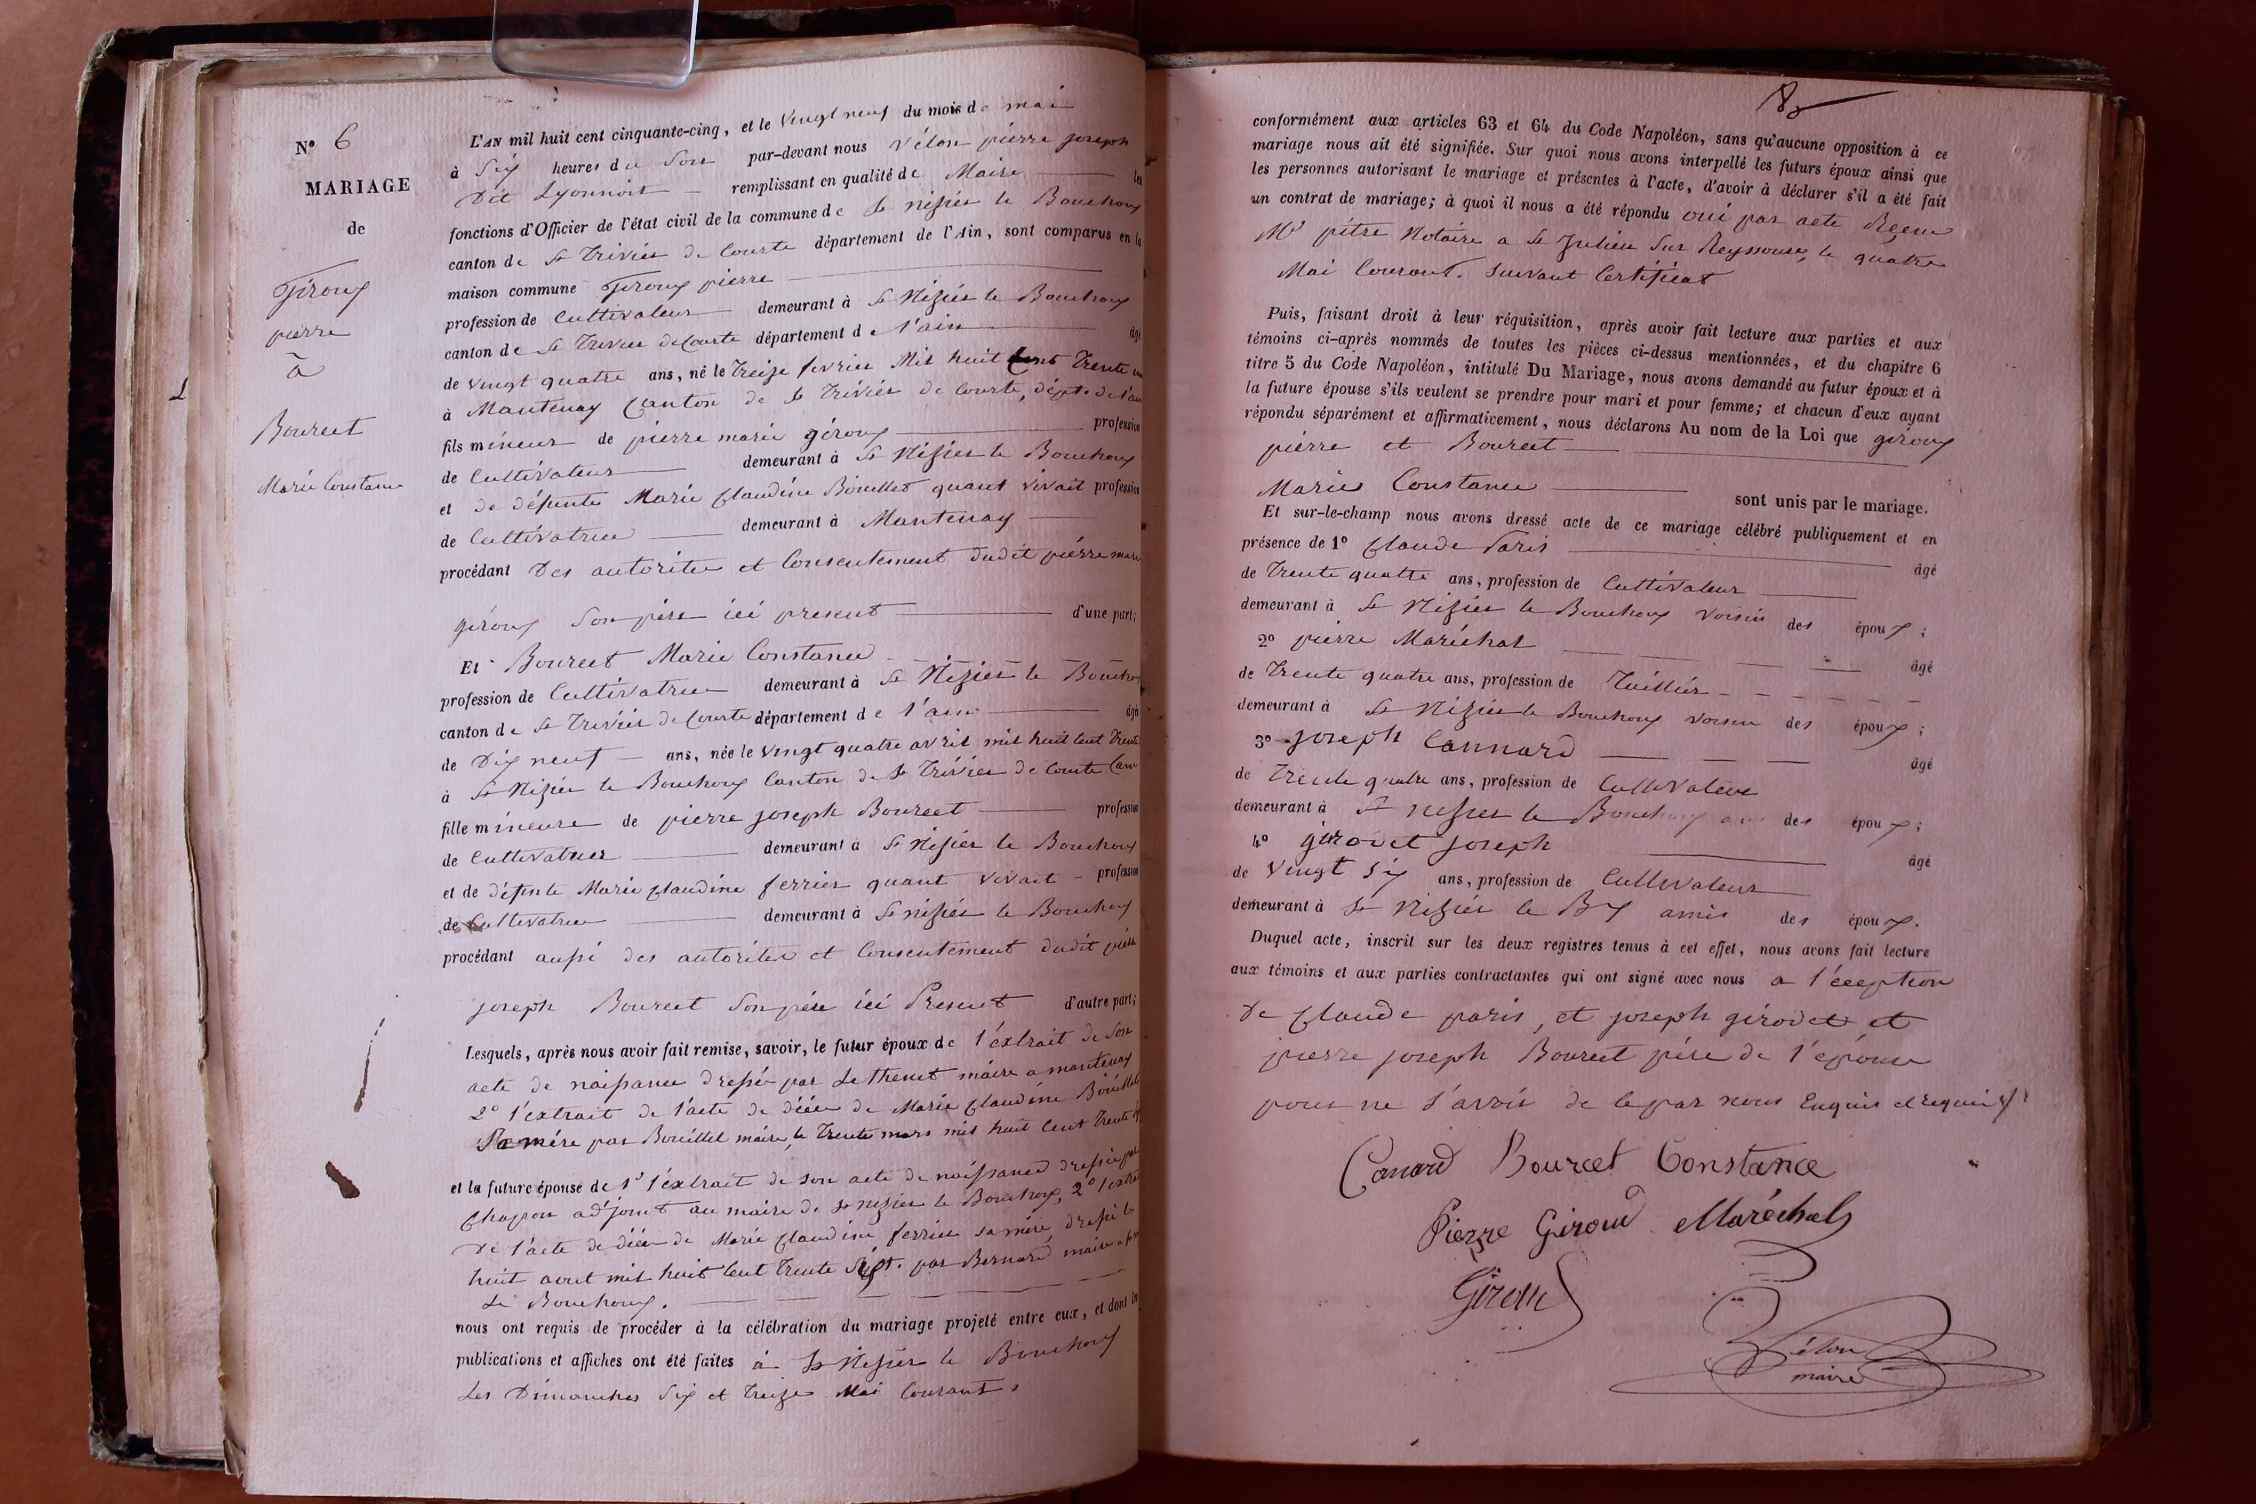 N° 6
MARIAGE
de
Giroux
pierre
à
Bourcet
Marie Constance
L'AN mil huit cent cinquante-cinq, et le vingt neuf du mois de mai
à Six heures du Soir par-devant nous Vélon pierre joseph
Dit Lyonnois remplissant en qualité de Maire les
fonctions d'Officier de l'état civil de la commune de St nizier le Bouchoux
canton de St Trivier de Courte département de l'Ain, sont comparus en la
maison commune Giroux pierre
profession de Cultivateur demeurant à St Nizier le Bouchoux
canton de St Trivier de Courte département de l'ain âgé
de vingt quatre ans, né le Treize fevrier Mil huit Cent Trente un
à Mantenay Canton de St Trivier de Courte, dépt. de l'ain
fils mineur de pierre marie giroux profession
de Cultivateur demeurant à St Nizier le Bouchoux
et de défunte Marie Claudine Bouillet quant vivait profession
de Cultivatrice demeurant à Mantenay
procédant Des autorité et Consentement dudit pierre marie
giroux Son père ici present d'une part;
Et Bourcet Marie Constance
profession de Cultivatrice demeurant à St Nizier le Bouchoux
canton de St Trivier de Courte département de l'ain âgée
de Dix neuf ans, née le vingt quatre avril mil huit Cent Trente
à St Nizier le Bouchoux Canton de St Trivier de Courte
fille mineure de pierre joseph Bourcet profession
de Cultivateur demeurant à St Nizier le Bouchoux
et de défunte Marie Claudine ferrier quant vivait profession
de Cultivatrice demeurant à St nizier le Bouchoux
procédant aussi des autorité et Consentement dudit pierre
joseph Bourcet Son père ici Present d'autre part;
Lesquels, après nous avoir fait remise, savoir, le futur époux de l'éxtrait de Son
acte de naissance dressé par Lethenet maire a mantenay
2° l'extrait de l'acte de décès de Marie Claudine Bouillet
Sa mère par Bouillet maire, le Trente mars mil huit Cent Trente
et la future épouse de 1° l'éxtrait de son acte de naissance dressé par
Chapon adjoint au maire de St nizier le Bouchoux, 2° l'extrait
De l'acte de décès de Marie Claudine ferrier sa mère, dressé le
huit aout mil huit Cent trente Sept. par Bernard maire a
Le Bouchoux.
nous ont requis de procéder à la célébration du mariage projeté entre eux, et dont les
publications et affiches ont été faites à St Nizier le Bouchoux
Les Dimanches Six et Treize Mai Courant,
8
conformément aux articles 63 et 64 du Code Napoléon, sans qu'aucune opposition à ce
mariage nous ait été signifiée. Sur quoi nous avons interpellé les futurs époux ainsi que
les personnes autorisant le mariage et présentes à l'acte, d'avoir à déclarer s'il a été fait
un contrat de mariage; à quoi il nous a été répondu oui par acte Receu
Me pitre Notaire a St Julien Sur Reyssouse, le quatre
Mai Courant. Suivant Certificat
Puis, faisant droit à leur réquisition, après avoir fait lecture aux parties et aux
témoins ci-après nommés de toutes les pièces ci-dessus mentionnées, et du chapitre 6
titre 5 du Code Napoléon, intitulé Du Mariage, nous avons demandé au futur époux et à
la future épouse s'ils veulent se prendre pour mari et pour femme; et chacun d'eux ayant
répondu séparément et affirmativement, nous déclarons Au nom de la Loi que giroux
pierre et Bourcet
Marie Constance sont unis par le mariage.
Et sur-le-champ nous avons dressé acte de ce mariage célébré publiquement et en
présence de 1° Claude Paris âgé
de Trente quatre ans, profession de Cultivateur
demeurant à St Nizier le Bouchoux voisin des époux;
2° pierre Maréchal âgé
de Trente quatre ans, profession de Tuillier
demeurant à St Nizier le Bouchoux voisin des époux;
3° joseph Cannard âgé
de Trente quatre ans, profession de Cultivateur
demeurant à St nizier le Bouchoux ami des époux;
4° girodet joseph âgé
de Vingt Six ans, profession de Cultivateur
demeurant à St Nizier le Bx amis des époux.
Duquel acte, inscrit sur les deux registres tenus à cet effet, nous avons fait lecture
aux témoins et aux parties contractantes qui ont signé avec nous a l'éception
De Claude paris, et joseph girodet et
pierre joseph Bourcet père de l'epouse
pour ne s'avoir de ce par nous Enquis et requis
Canard Bourcet Constance
Pierre Giroud Maréchal
Giroud
Vélon
maire